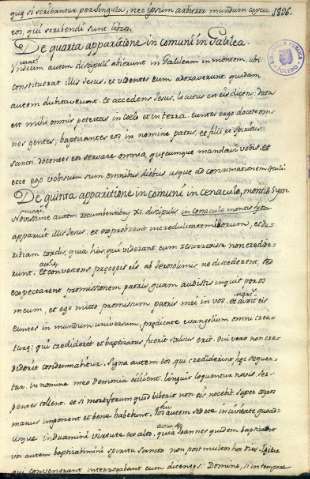 que si scribantur per singula, nec ipsum arbitror mundum capere 1806.
eos, qui scribendi sunt libros.
De quarta apparitione in comuni in Galilea.
Undecim autem discipuli abierunt in Galileam in montem, ubi
constituerat illis Jesus, et videntes eum adoraverunt quidam
autem dubitaverunt. et accedens Jesus locutus est eis dicens, data
est mihi omnis potestas in cœlo et in terra. euntes ergo docete om
nes gentes, baptizantes eos in nomine patris, et filii, et spiritus
sancti. docentes eos servare omnia, quæcumque mandavi vobis. et
ecce ego vobiscum sum omnibus diebus usque ad consumationem seculi
De quinta apparitione in comuni in cenaculo, montis Syon
autem recumbentibus XI. discipulis in cenaculo montis Syon
apparuit illis Jesus, et exprobravit incredulitatem illorum, et du
ritiam cordis, quia his, qui viderant eum resurrexisse non credide
runt. et convescens præcepit eis ab Jerosolimis ne discederent, sed
expectarent promissionem patris, quam audistis inquit per os
meum, et ego mitto promissum patris mei in vos.
euntes in mundum universum, prædicate evangelium omni crea
turæ: qui crediderit et baptizatus fuerit salvus erit. qui vero non cre
diderit condemnabitur. signa autem eos qui crediderint hæc sequen
tur. In nomine meo demonia eiicient. linguis loquentur novis. ser
pentes tollent. et si mortiferum quid biberint non eis nocebit. super egros
manus imponent et bene habebunt. vos autem sedete in civitate quoad
usque induamini virtute ex alto. quia Joannes quidem baptizavit
vos autem baptizabimini spiritu sancto non post multos hos dies. Igitur
qui convenerant interrogabant eum dicentes. Domine, si in tempore